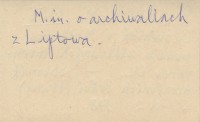 M. in. o archiwaliach
z Liptowa.